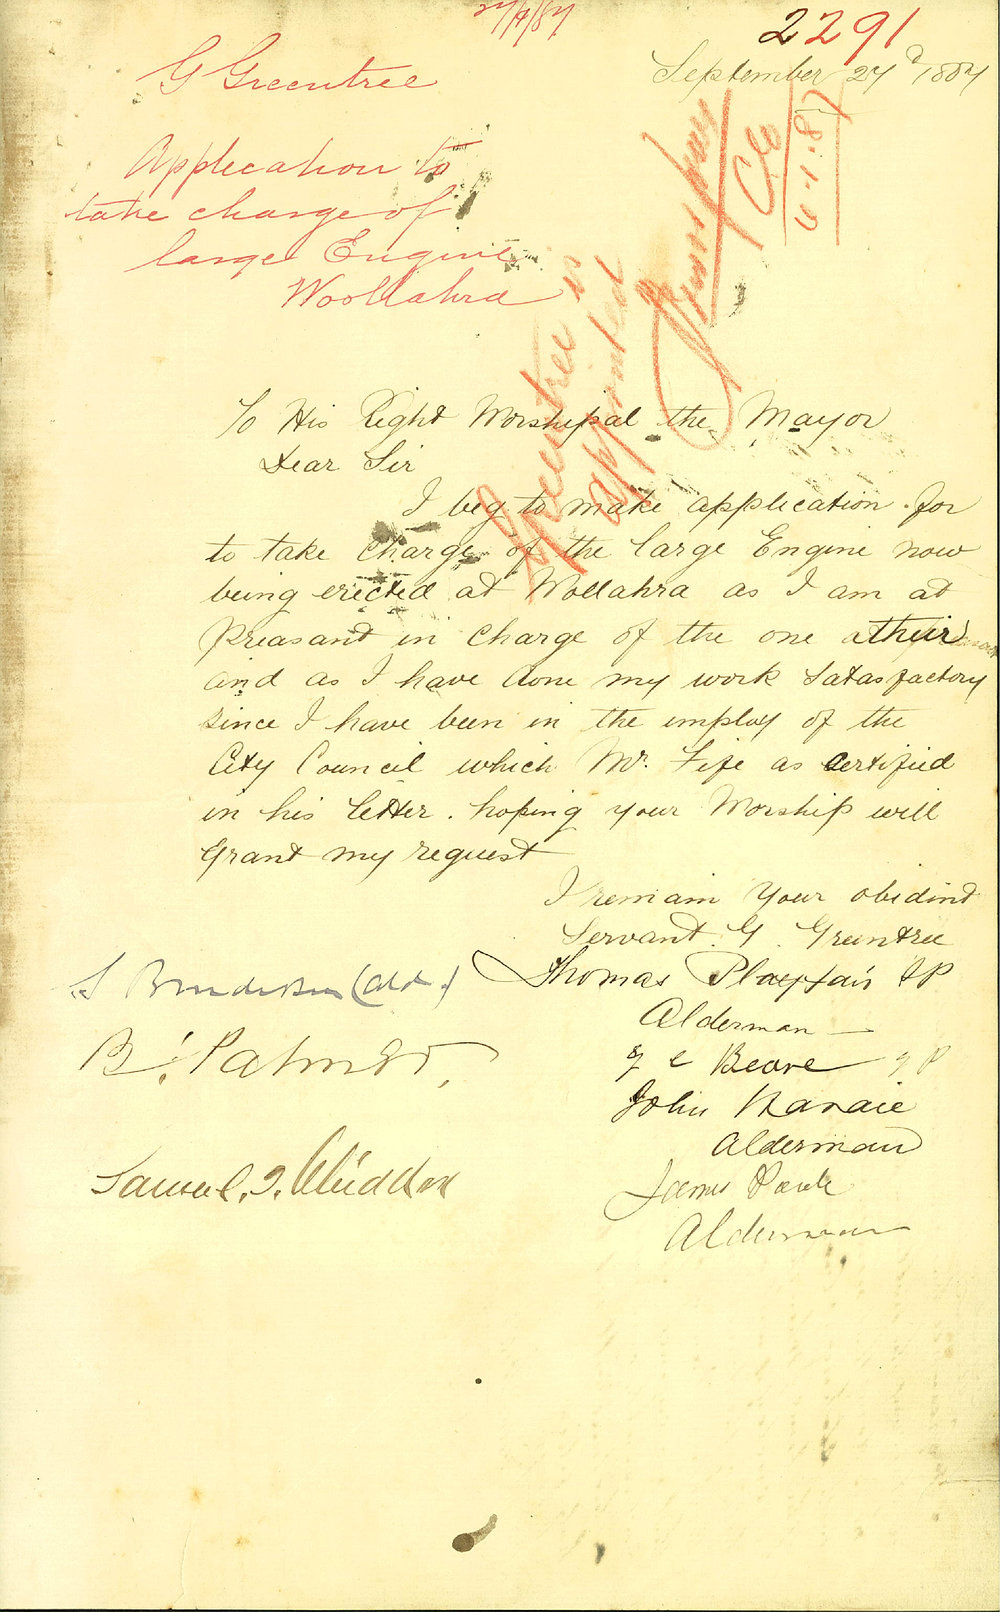 27/9/87
2291
G Greentree
September 27d 1887
Application to
take charge of
large Engine
Woollahra
Greentree is
appointed
6.1.87
To His Right Worshipal the Mayor
Dear Sir
I beg to make application for
to take charge of the large Engine now
being erected at Wollahra as I am at
Preasant in charge of the one
and as I have done my work Satasfactory
since I have been in the employ of the
City Council which Mr. Fife as Certified
in his letter. hoping your Worship will
Grant my request
I remain Your obidint
Servant. G. Greentree
Thomas Playfair JP
Alderman
(Ald.)
B. Palmer
Beare JP
John
Alderman
Samuel
James
Alderman